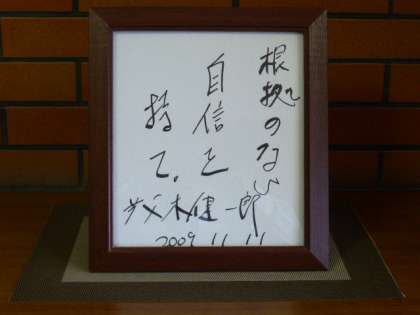 根拠のない
自信を
持て.
茂木健一郎
2009.11.11